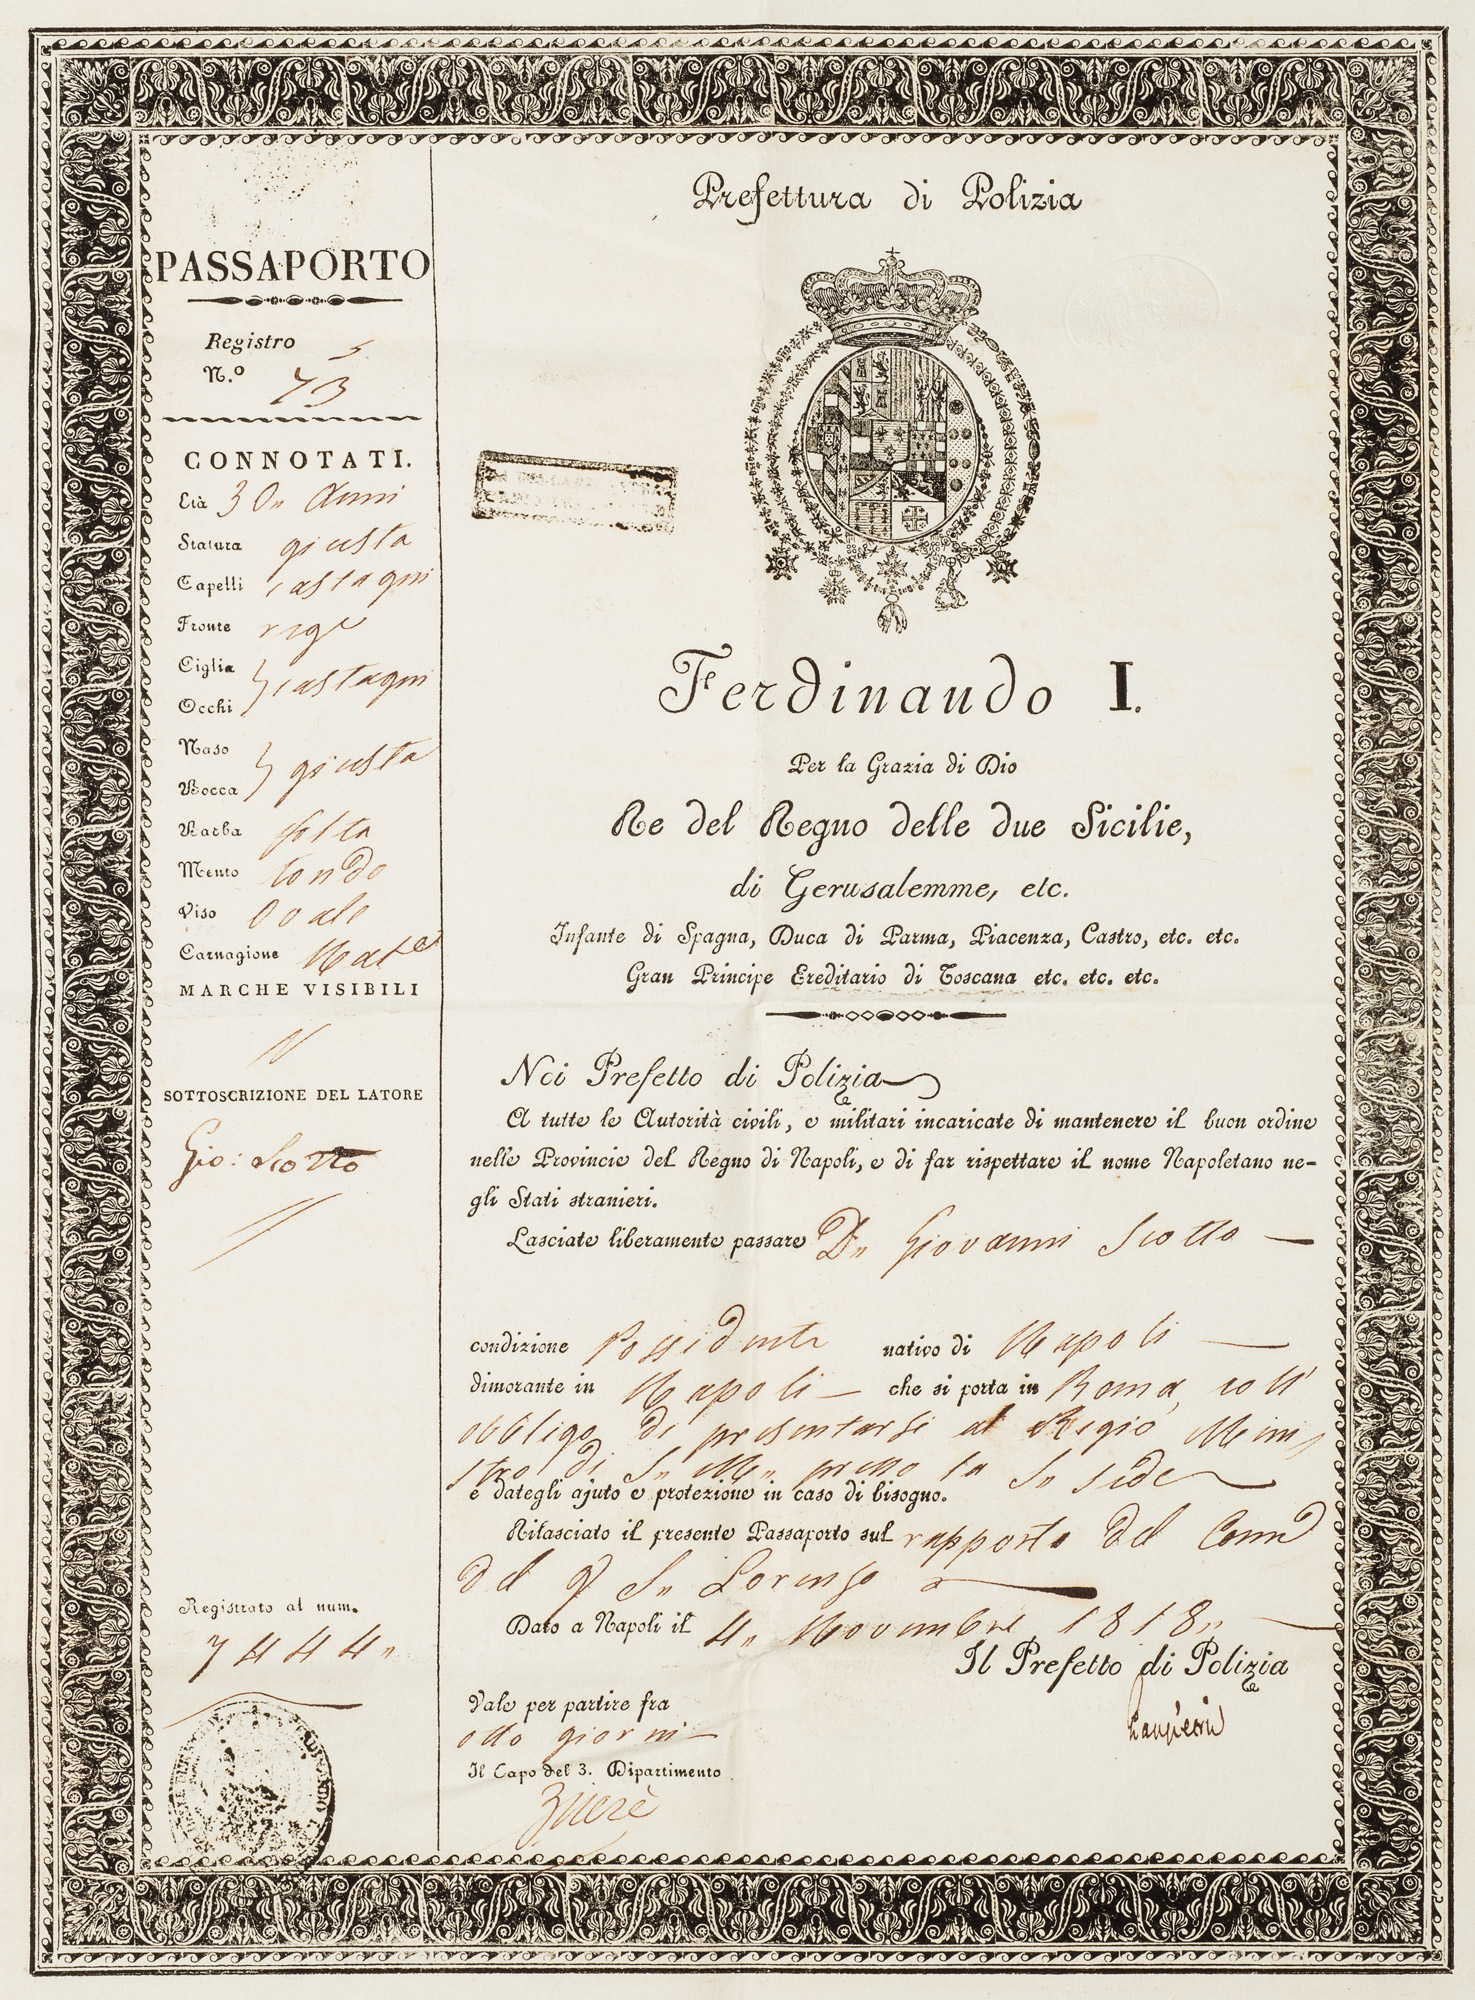 PASSAPORTO
Registro 5
N.º 73
CONNOTATI.
Età 30 Anni
Statura giusta
Capelli castagni
Fronte
Ciglia
Occhi castagni
Naso
Bocca giusta
Barba folta
Mento tondo
Viso Ovale
Carnagione Nat.e
MARCHE VISIBILI
SOTTOSCRIZIONE DEL LATORE
Gio: Scotto
Registrato al num.
7444
Prefettura di Polizia
Ferdinando I.
Per la Grazia di Dio
Re del Regno delle due Sicilie,
di Gerusalemme, etc.
Infante di Spagna, Duca di Parma, Piacenza, Castro, etc. etc.
Gran Principe Ereditario di Toscana etc. etc. etc.
Noi Prefetto di Polizia
A tutte le Autorità civili, e militari incaricate di mantenere il buon ordine
nelle Provincie del Regno di Napoli, e di far rispettare il nome Napoletano ne-
gli Stati stranieri.
Lasciate liberamente passare Dn Giovanni Scotto
condizione Possidente nativo di Napoli
dimorante in Napoli che si porta in Roma, coll'
obbligo di presentarsi al Regio Mini
stro di S. M. presso la S. Sede
e dategli ajuto e protezione in caso di bisogno.
Rilasciato il presente Passaporto sul rapporto del Comm
del Q S. Lorenzo
Dato a Napoli il 4 Novembre 1818
Il Prefetto di Polizia
Vale per partire fra
otto giorni
Il Capo del 3. Dipartimento